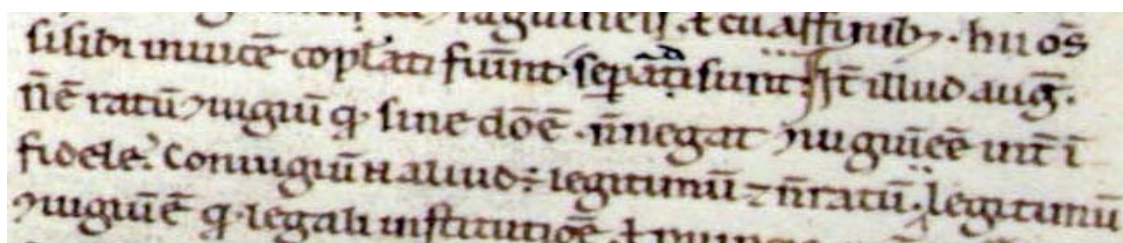 ⁊ cū affinibꝫ · hii oēs
si sibi inuicē copl'ati fuīnt sepādi sunt. Itē illud aug̅.
n̄ ē ratū ꝯiugiū qͥ sine dō ē · n̄ negat ꝯiugiū ēē int̄ ī
fideles. Coniugiū n̄ aliud ÷ legitimū ⁊ n̄ ratū. legitimū
ꝯiugiū ē qͥ legali institutiōe ł